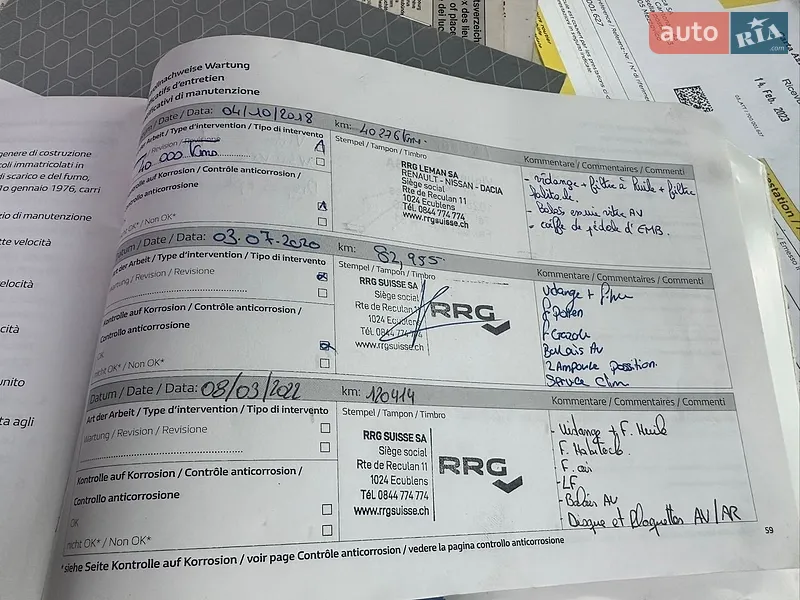 auto RIA .com
14. Feb. 2023
nachweise Wartung
icatifs d'entretien
ificativi di manutenzione
Date / Data: 04/10/2018
km: 40276 Kms
Arbeit / Type d'intervention / Tipo di intervento
40 000 Kms
trolle auf Korrosion / Contrôle anticorrosion /
trollo anticorrosione
OK* / Non OK*
Stempel / Tampon / Timbro
RRG LEMAN SA
RENAULT - NISSAN - DACIA
Siège social
Rte de Reculan 11
1024 Ecublens
Tél. 0844 774 774
www.rrgsuisse.ch
Kommentar / Commentaires / Commenti
- vidange + filtre à huile + filtre
habitacle.
- Balais essuie vitre AV
- coiffe de pédale d'EMB.
Datum / Date / Data: 03.07.2020
km: 82,955
Art der Arbeit / Type d'intervention / Tipo di intervento
Wartung / Revision / Revisione
Kontrolle auf Korrosion / Contrôle anticorrosion /
Controllo anticorrosione
OK
nicht OK* / Non OK*
Stempel / Tampon / Timbro
RRG SUISSE SA
Siège social
Rte de Reculan 11
1024 Ecublens
Tél. 0844 774 774
www.rrgsuisse.ch
RRG
Kommentare / Commentaires / Commenti
Vidange +
F Pollen
F Gazole
Balais AV
2 Ampoule position.
Service Clim
Datum / Date / Data: 08/03/2022
km: 120414
Art der Arbeit / Type d'intervention / Tipo di intervento
Wartung / Revision / Revisione
Kontrolle auf Korrosion / Contrôle anticorrosion /
Controllo anticorrosione
OK
nicht OK* / Non OK*
Stempel / Tampon / Timbro
RRG SUISSE SA
Siège social
Rte de Reculan 11
1024 Ecublens
Tél. 0844 774 774
www.rrgsuisse.ch
RRG
Kommentare / Commentaires / Commenti
- Vidange + F. Huile
F. Habitacle
- F. air
- LF
- Balais AV
- Disque et Plaquettes AV/AR
59
* siehe Seite Kontrolle auf Korrosion / voir page Contrôle anticorrosion / vedere la pagina controllo anticorrosione
genere di costruzione
coli immatricolati in
di scarico e del fumo,
1o gennaio 1976, carri
zio di manutenzione
tte velocità
elocità
cità
unito
ta agli